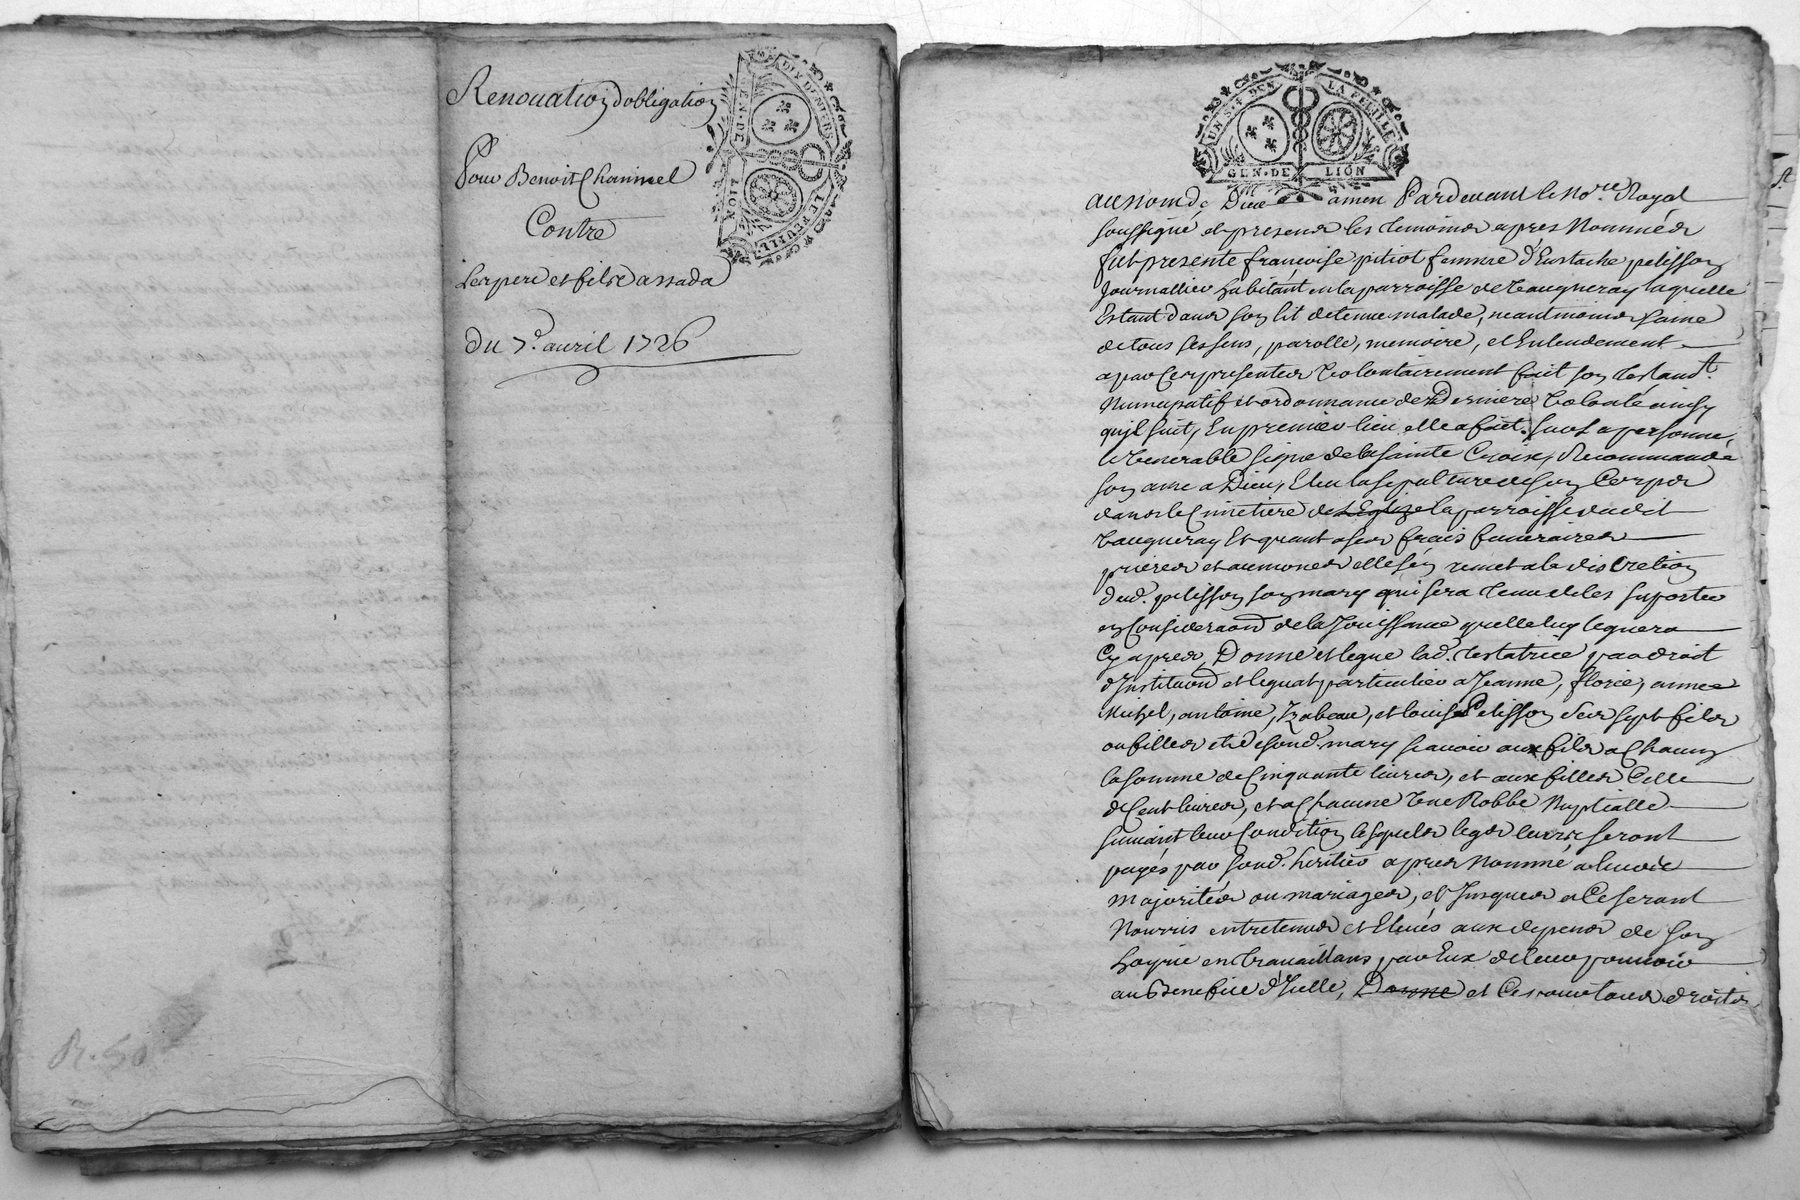 Renouation dobligation
Pour Benoit Chaninel
Contre
Les pere et fils dassada
du 7e. auril 1726
DIX DENIERS
LE FEUILL
GEN. DE
LION
R. 50
UN S. 4 DEN
LA FEUILLE
GEN. DE LION
au nom de Dieu amen Pardeuant le No.re Royal
soussigné et presens les temoins apres Nommés
fut presente francoise pitiot femme d'Eustache pelisson
Journallier habitant en la parroisse de Vaugneray laquelle
Estant dans son lit detenue malade, neantmoins saine
de tous ses sens, parolle, memoire, et Entendement
a par ces presentes volontairement fait son testamt.
Nuncupatif et ordonnance de Derniere volonté ainsy
qu'il suit, En premier lieu elle a fait sur sa personne
le venerable signe de la sainte Croix, Recommandé
son ame a Dieu, Eleu la sepulture de son Corps
dans le Cimetiere de L'Eglize la parroisse dudit
Vaugneray Et quant a ses frais funeraires
prieres et aumones elle s'en remet a la discretion
dud. pelisson son mary qui sera tenu de les suporter
en Consideraon de la Jouissance quelle luy leguera
Cy apres, Donne et legue lad. testatrice par droit
d'Instituon et legat particulier a Jeanne, florie, aimée
Michel, antoine, Izabeau, et louise Pelisson ses sept fils
ou filles et de sond. mary scauoir aux fils a Chacun
la somme de Cinquante liures, et aux filles Celle
de Cent liures, et a Chacune Une Robbe Nuptialle
suiuant leur Condition lesquels legs leur seront
payés par sond. heritier apres Nommé a leurs
majorités ou mariages, et Jusques a Ce seront
Nourris entretenus et Eleués aux depens de son
hoyrie en trauaillans par Eux de leur pouuoir
au Benefice d'Icelle, Donne et Ce pour tous droits